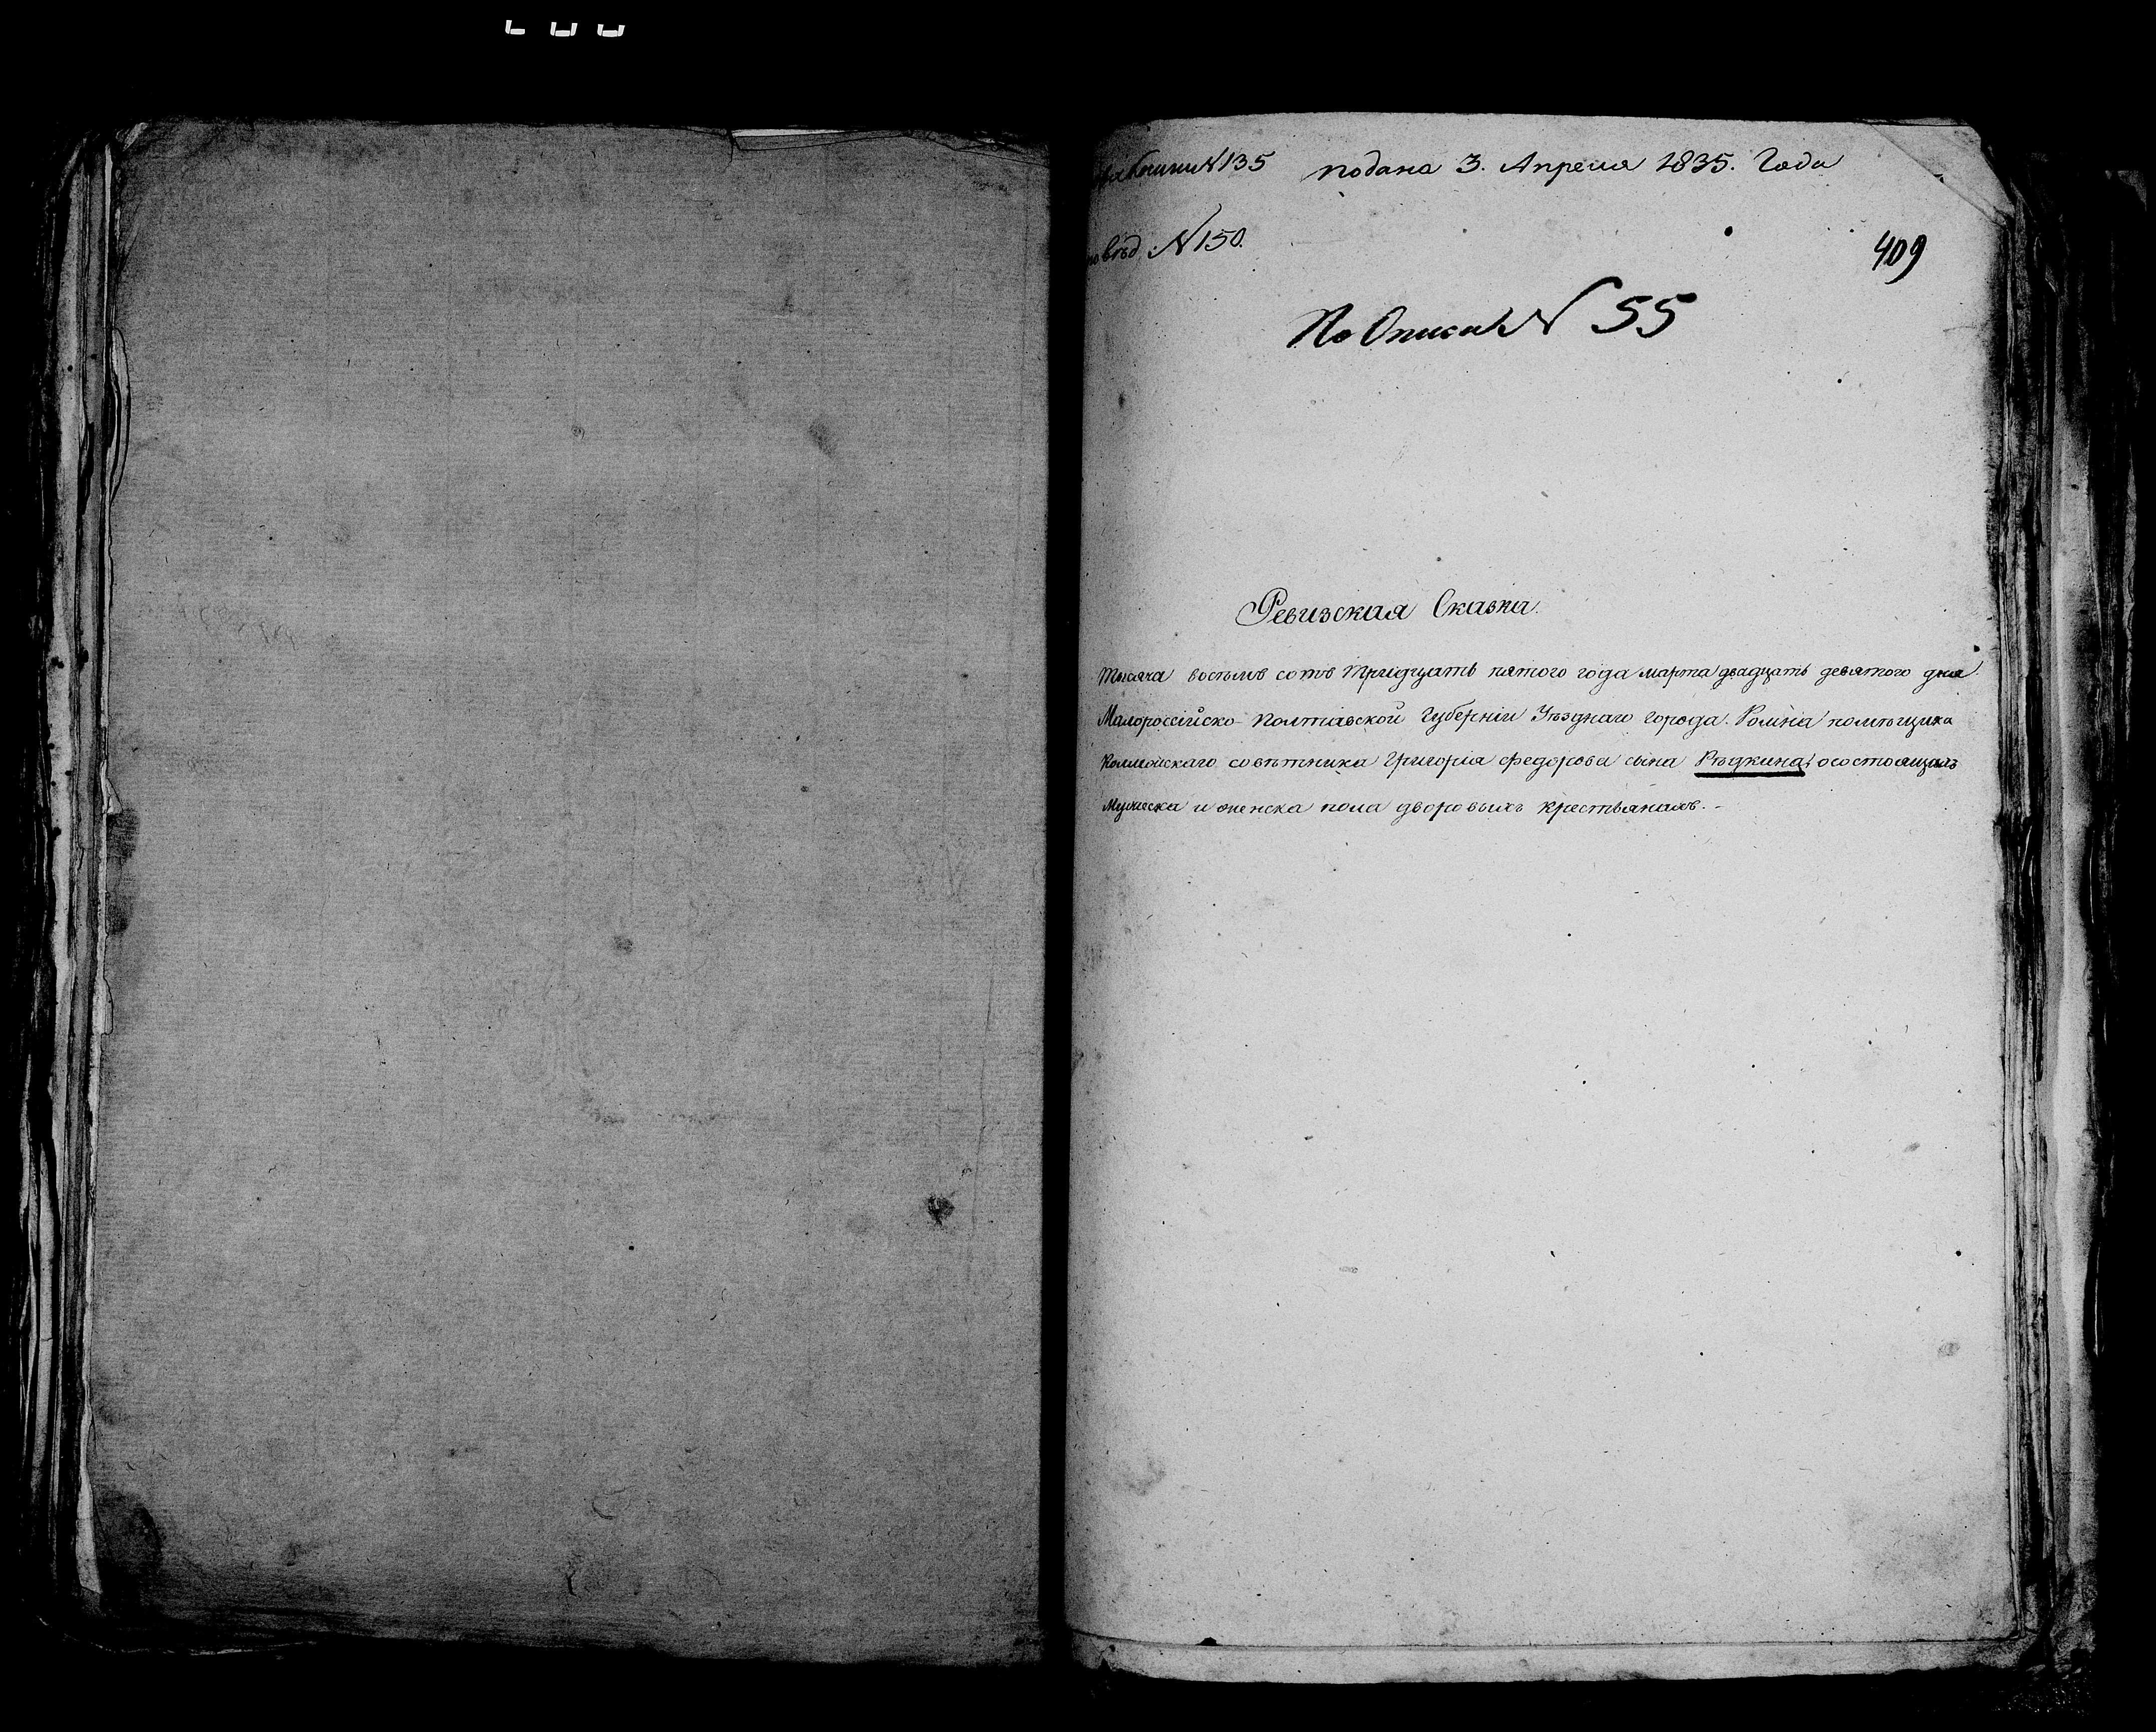 Книги №135 подана 3. Апреля 1835. Года
вѣд. №150.
409
По Описи № 55
Ревизская Сказка.
Тысяча восемь сотъ тридцать пятого года марта двадцать девятого дня
Малороссійско-Полтавской Губерніи Уѣзднаго города Ромна помѣщика
Коллежскаго совѣтника Григорія Федорова сына Рѣдкина, о состоящихъ
Мужеска и женска пола дворовыхъ крестьянахъ.-